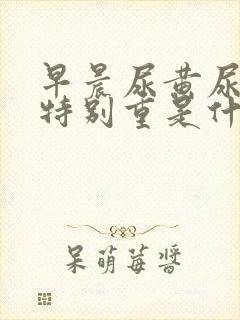 早晨尿黄尿
特别重是什
呆萌莓酱